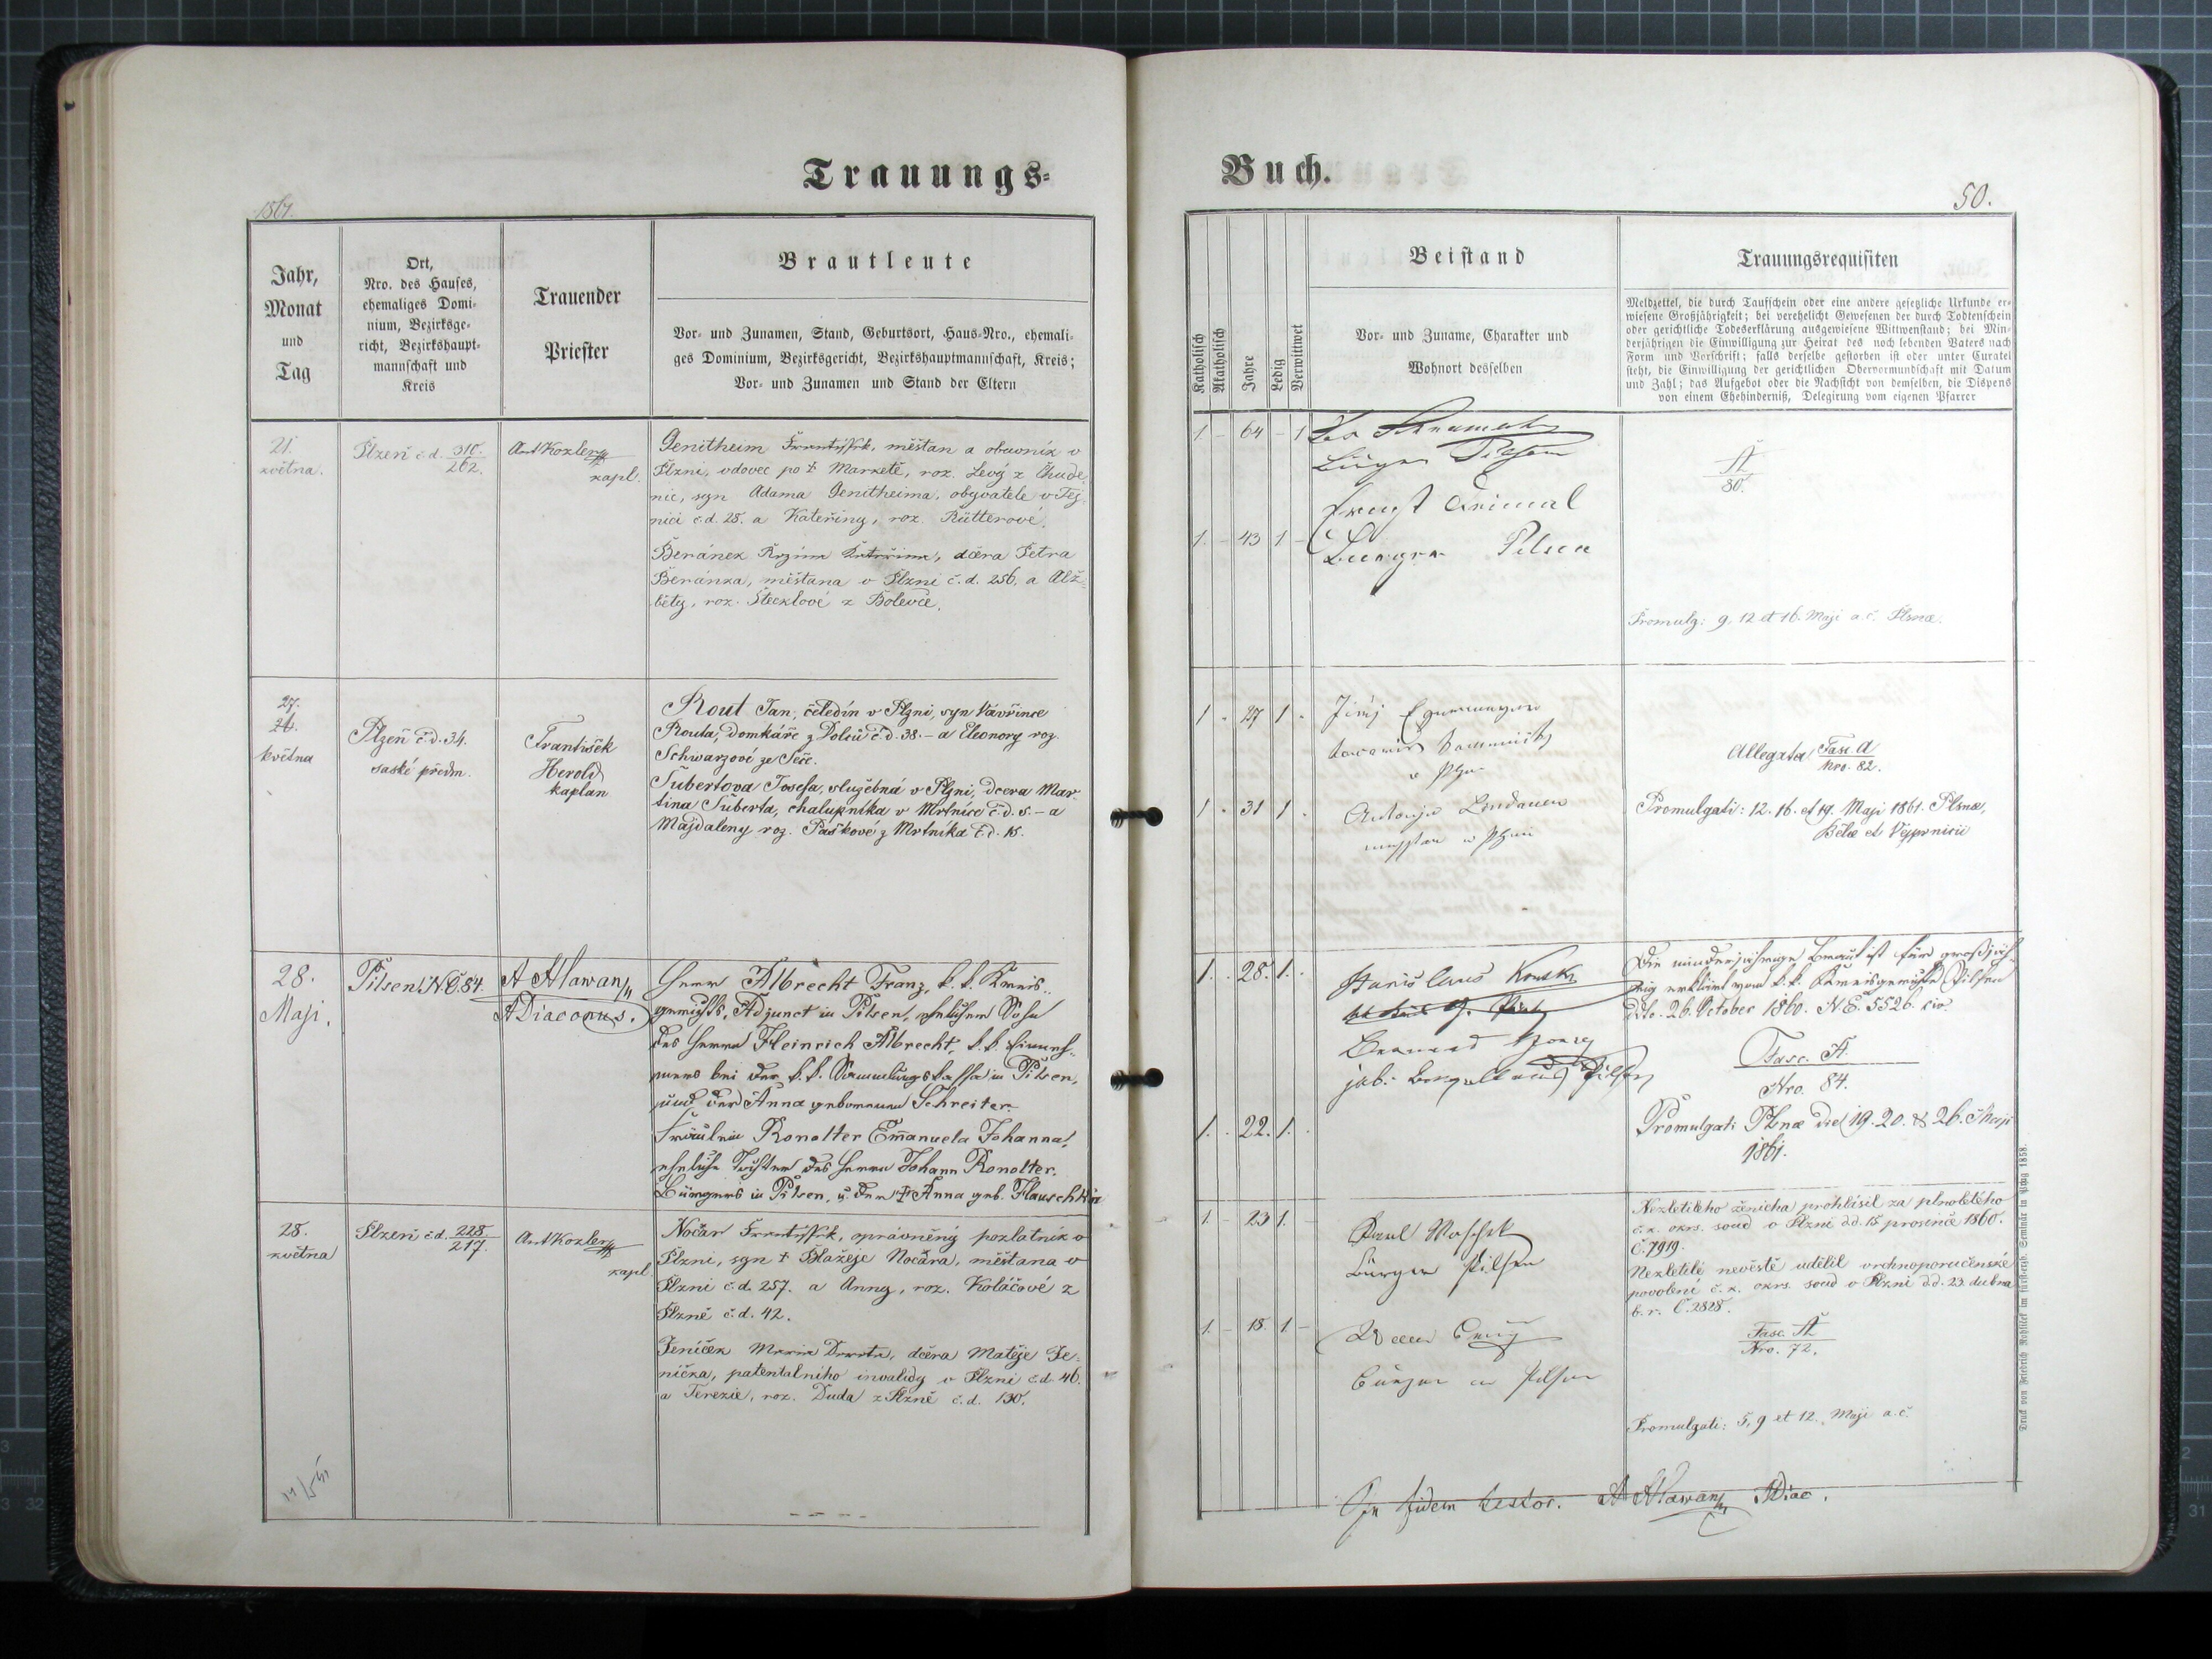 Trauungs-
1861.
Jahr,
Monat
und
Tag
Ort,
Nro. des Hauses,
ehemaliges Domi-
nium, Bezirksge-
richt, Bezirkshaupt-
mannschaft und
Kreis
Trauender
Priester
Brautleute
Vor- und Zunamen, Stand, Geburtsort, Haus-Nro., ehemali-
ges Dominium, Bezirksgericht, Bezirkshauptmannschaft, Kreis;
Vor- und Zunamen und Stand der Eltern
21.
května.
Plzeň č.d. 310./262.
Ant Kozler
kapl.
Genitheim František, měštan a obuvník v
Plzni, vdovec po † Markétě, roz. Levý z Chude-
nic, syn Adama Genitheima, obyvatele v Tej-
nici č.d. 28. a Kateřiny, roz. Rütterové.
Beránek, dcera Petra
Beránka, měštana v Plzni č.d. 256. a Alž-
běty, roz. Štecklové z Bolevce.
27.
května
Plzeň č.d. 34.
saské předm.
František
Herold
kaplan
Rout Jan, čeledín v Plzni, syn Vavřince
Routa, domkáře z Dolců č.d. 38. – a Eleonory roz.
Schwarzové ze Seče.
Šubertova Josefa, služebná v Plzni, dcera Mar-
tina Šuberta, chalupníka v Mrtnice č.d. 5. – a
Majdaleny roz. Paškové z Mrtníka č.d. 15.
28.
Maji.
Pilsen N.C. 84.
A Hlawan
ADiaconus.
Herr Albrecht Franz, k. k. Kreis-
gerichts, Adjunct in Pilsen, ehelicher Sohn
des Herrn Heinrich Albrecht, k. k. Einneh-
mers bei der k. k. Sammlungskassa in Pilsen,
und der Anna gebornenen Schreiter.
Fräulein Ronolter Emanuela Johanna,
eheliche Tochter des Herrn Johann Ronolter,
Bürgers in Pilsen, u. der † Anna geb. Hauschka
28.
května
Plzeň č.d. 228/217.
Ant Kozler
kapl
Nočar František, oprávněný pozlatník v
Plzni, syn † Blažeje Nočára, měštana v
Plzni č.d. 257. a Anny, roz. Koláčové z
Plzně č.d. 42.
Jeníček Marie, dcera Matěje Je-
níčka, patentalního invalidy v Plzni č.d. 46.
a Terezie, roz. Duda z Plzně č.d. 130.
Buch.
50.
Katholisch
Akatholisch
Jahre
Ledig
Verwittwet
Beistand
Vor- und Zuname, Charakter und
Wohnort desselben
Trauungsrequisiten
Meldzettel, die durch Taufschein oder eine andere gesetzliche Urkunde er-
wiesene Großjährigkeit; bei verehelicht Gewesenen der durch Todtenschein
oder gerichtliche Todeserklärung ausgewiesene Wittwenstand; bei Min-
derjährigen die Einwilligung zur Heirat des noch lebenden Vaters nach
Form und Vorschrift; falls derselbe gestorben ist oder unter Curatel
steht, die Einwilligung der gerichtlichen Obervormundschaft mit Datum
und Zahl; das Aufgebot oder die Nachsicht von demselben, die Dispens
von einem Ehehinderniß, Delegirung vom eigenen Pfarrer
1 - 64 - 1
Bürger Pilsen
A/80.
1. - 43 1 -
Ernst Animal
Buerger Pilsen
Promulg: 9, 12 et 16. Maji a.c. Plsnæ.
1 - 27 1 -
Jiřij
w Plzni
Allegata Fasc. A/Nro. 82.
1 - 31 1 -
Antonín
w Plzni
Promulgati: 12. 16. et 19. Maji 1861. Plsnæ,
1. - 28. 1. -
Stanislaus
Die minderjährige Braut ist für großjäh-
rig erklärt vom k. k. Kreisgerichte Pilsen
ddo. 26. October 1860. N.E. 5526. civ.
Fasc. A.
Nro. 84.
1. - 22. 1. -
Promulgati Plsnæ die 19. 20. & 26. Maji
1861.
1. - 23 1. -
Paul Maschek
Bürger Pilsen
Nezletilého ženicha prohlásil za plnoletého
c. k. okrs. soud v Plzni dd. 15 prosince 1860.
Č. 7919.
Nezletilé nevěstě udělil vrchnoporučenské
povolení c. k. okrs. soud v Plzni d.d. 23. dubna
b. r. Č. 2828.
1. - 18. 1. -
Bürger in Pilsen
Fasc. A
Nro. 72.
Promulgati: 5, 9 et 12. Maji a.c.
In fidem testor. A Hlawan ADiac.
Druck von Friedrich Rohliček im fürst-erzb. Seminär in Prag 1858.